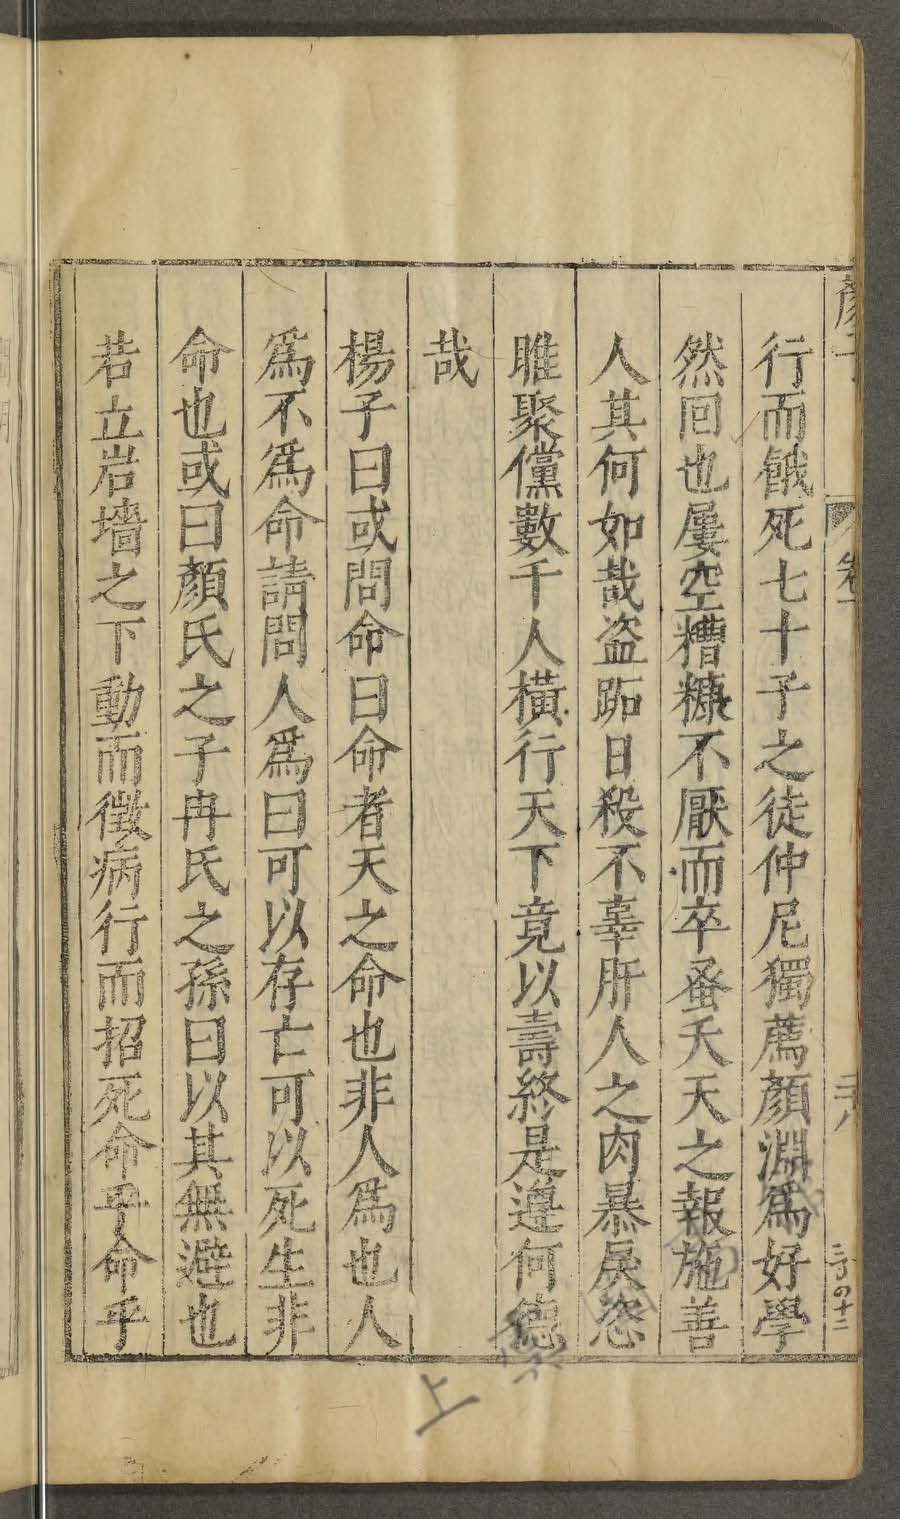 顏子 卷一
行而餓死七十子之徒仲尼獨薦顏淵爲好學
然回也屢空糟糠不厭而卒蚤夭天之報施善
人其何如哉盗跖日殺不辜肝人之肉暴戾恣
睢聚儻數千人橫行天下竟以壽終是遵何德
哉
楊子曰或問命曰命者天之命也非人爲也人
爲不爲命請問人爲曰可以存亡可以死生非
命也或曰顏氏之子冉氏之孫曰以其無避也
若立岩墻之下動而徵病行而招死命乎命乎
上